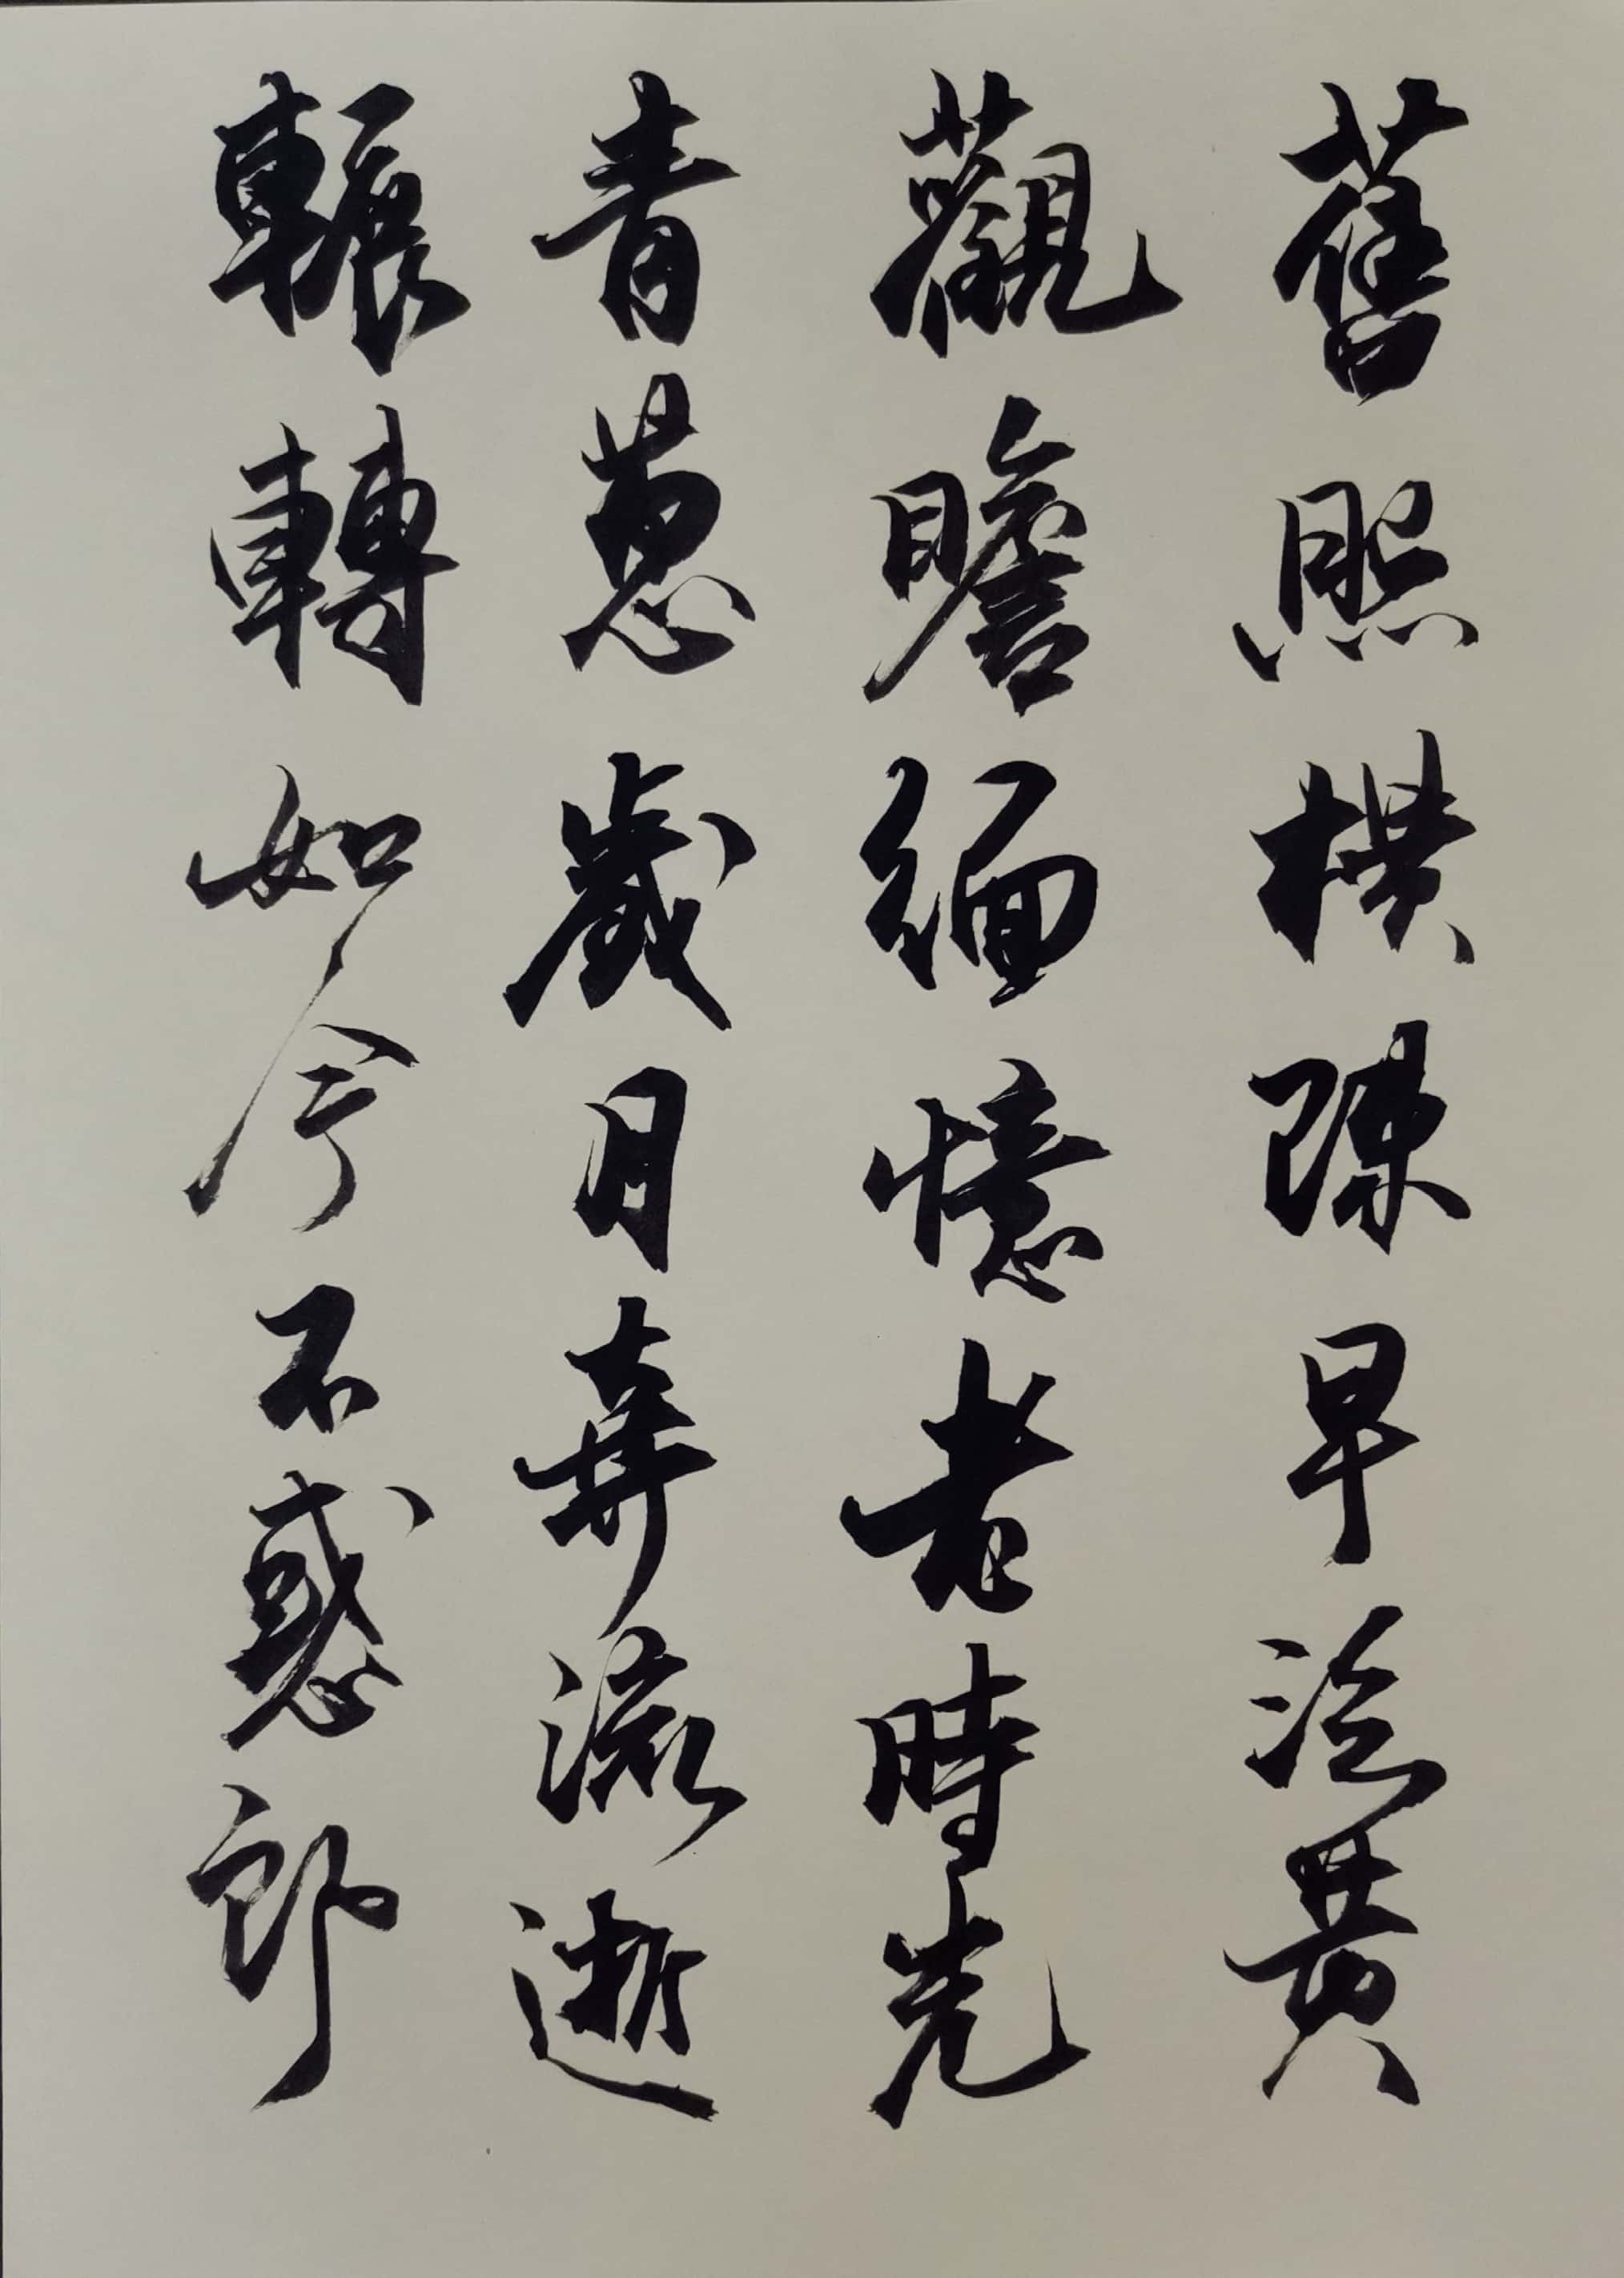 舊照橫陳早泛黃
觀瞻緬憶老時光
青蔥歲月奔流逝
輾轉如今不惑郎